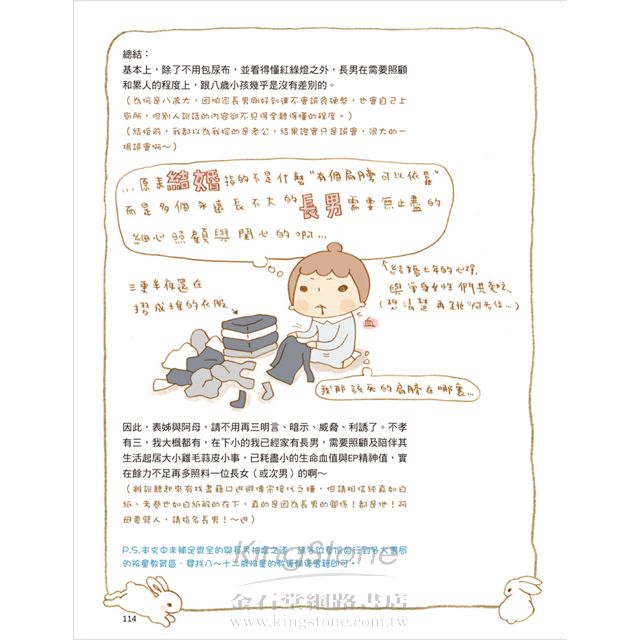 總結：
基本上，除了不用包尿布，並看得懂紅綠燈之外，長男在需要照顧
和累人的程度上，跟八歲小孩幾乎是沒有差別的。
（為何是八歲大，因咱家長男剛好到達不會誤食硬幣，也會自己上
廁所，但別人說話的內容卻不見得全聽得懂的程度。）
（結婚前，我都以為我嫁的是老公，結果證實只是誤會，很大的一
場誤會啊～）
...原來結婚指的不是什麼"有個肩膀可以依靠"
而是多個永遠長不大的長男需要無止盡的
細心照顧與關心的啊...
三更半夜還在
摺成堆的衣服
結婚七年的心得，
與單身女性們共勉之
（想清楚再2嫁啊各位...）
血
我那該死的肩膀在哪裏...
因此，表姊與阿母，請不用再三明言、暗示、威脅、利誘了。不孝
有三，我大概都有，在下小的我已經家有長男，需要照顧及陪伴其
生活起居大小雞毛蒜皮小事，已耗盡小的生命血值與EP精神值，實
在餘力不足再多照料一位長女（或次男）的啊～
（雖說聽起來有找書藉口逃避傳宗接代之嫌，但請相信純真如白
紙、考卷也如白紙般的在下，真的是因為長男的關係！都是他！阿
母要罵人，請指名長男！～逃）
P.S.本文中未補足齊全的與長男相處之道，請各位看倌自行到各大書局
的孩童教育區，尋找八～十二歲孩童的教導輔導書籍即可。
KingStone
金石堂網路書店
www.kingstone.com.tw
114